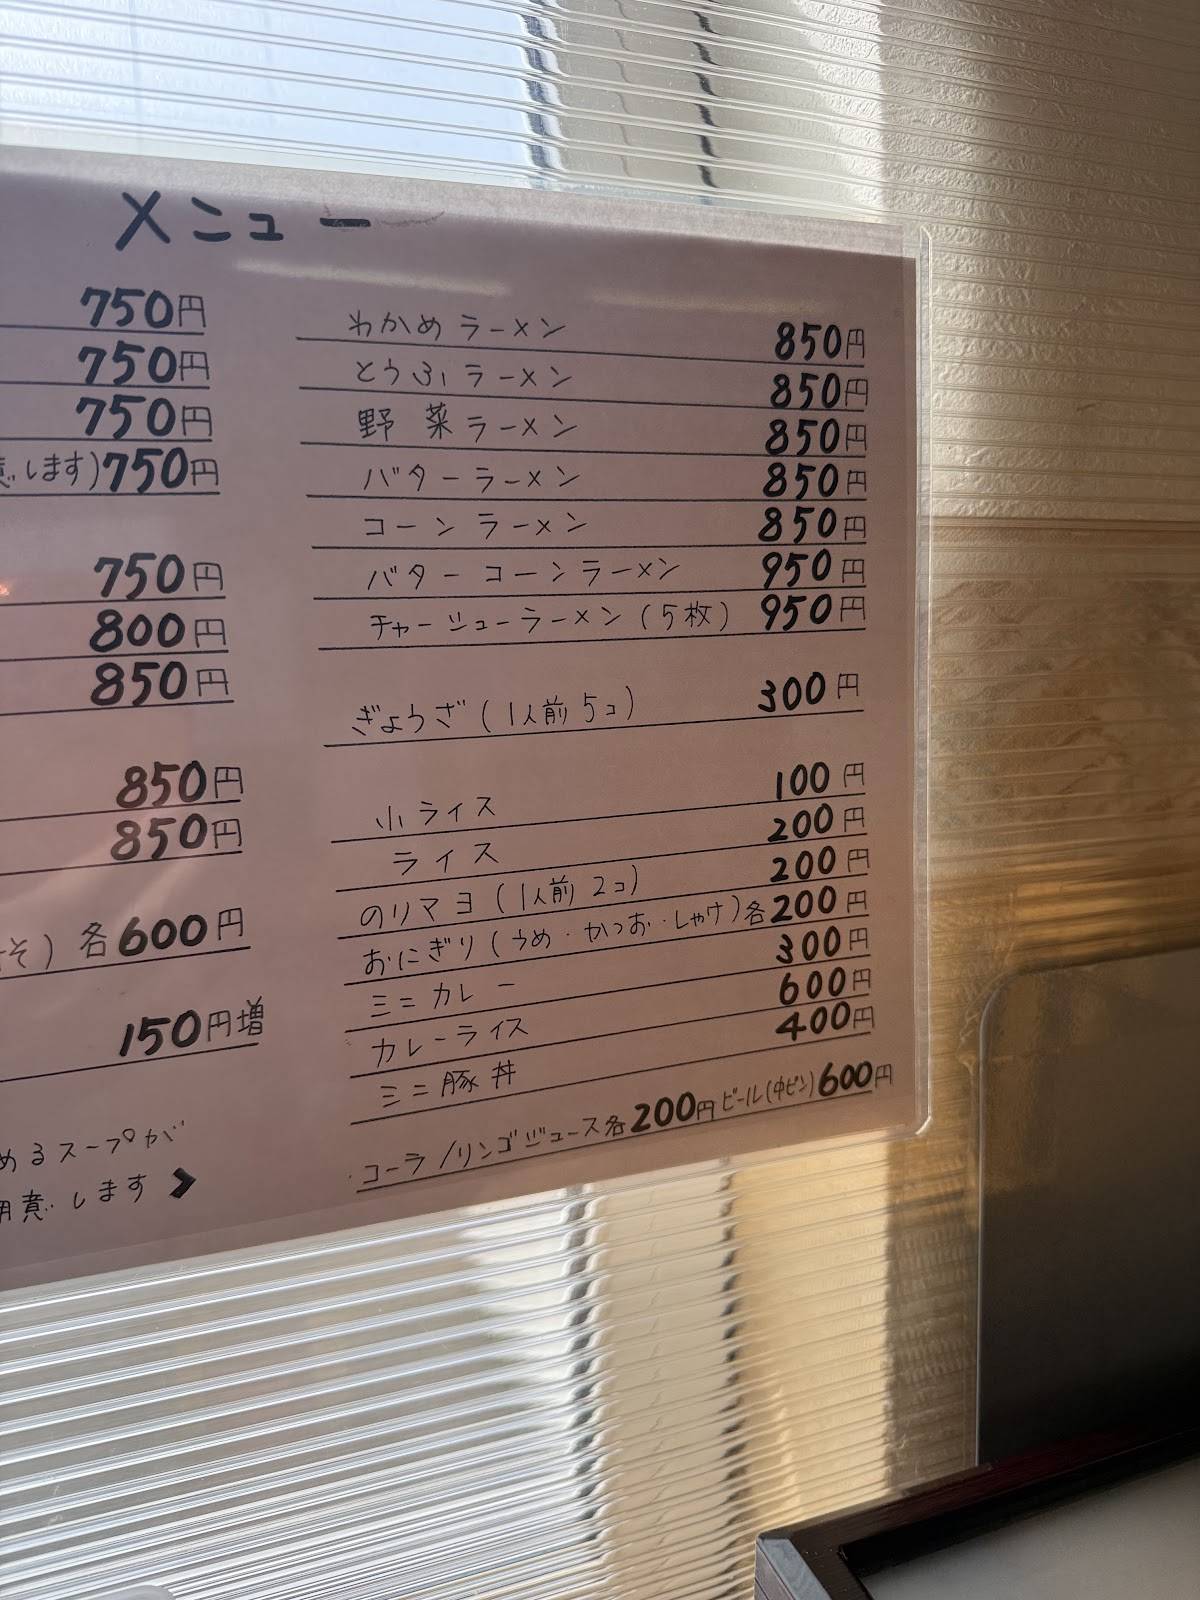 メニュー
750円
750円
750円
意します)750円
750円
800円
850円
850円
850円
そ) 各600円
150円増
めるスープが
用意します
わかめラーメン 850円
とうふラーメン 850円
野菜ラーメン 850円
バターラーメン 850円
コーンラーメン 850円
バターコーンラーメン 950円
チャーシューラーメン(5枚) 950円
ぎょうざ(1人前 5コ) 300円
小ライス 100円
ライス 200円
のりマヨ(1人前 2コ) 200円
おにぎり(うめ・かつお・しゃけ)各200円
ミニカレー 300円
カレーライス 600円
ミニ豚丼 400円
コーラ/リンゴジュース各200円 ビール(中ビン)600円